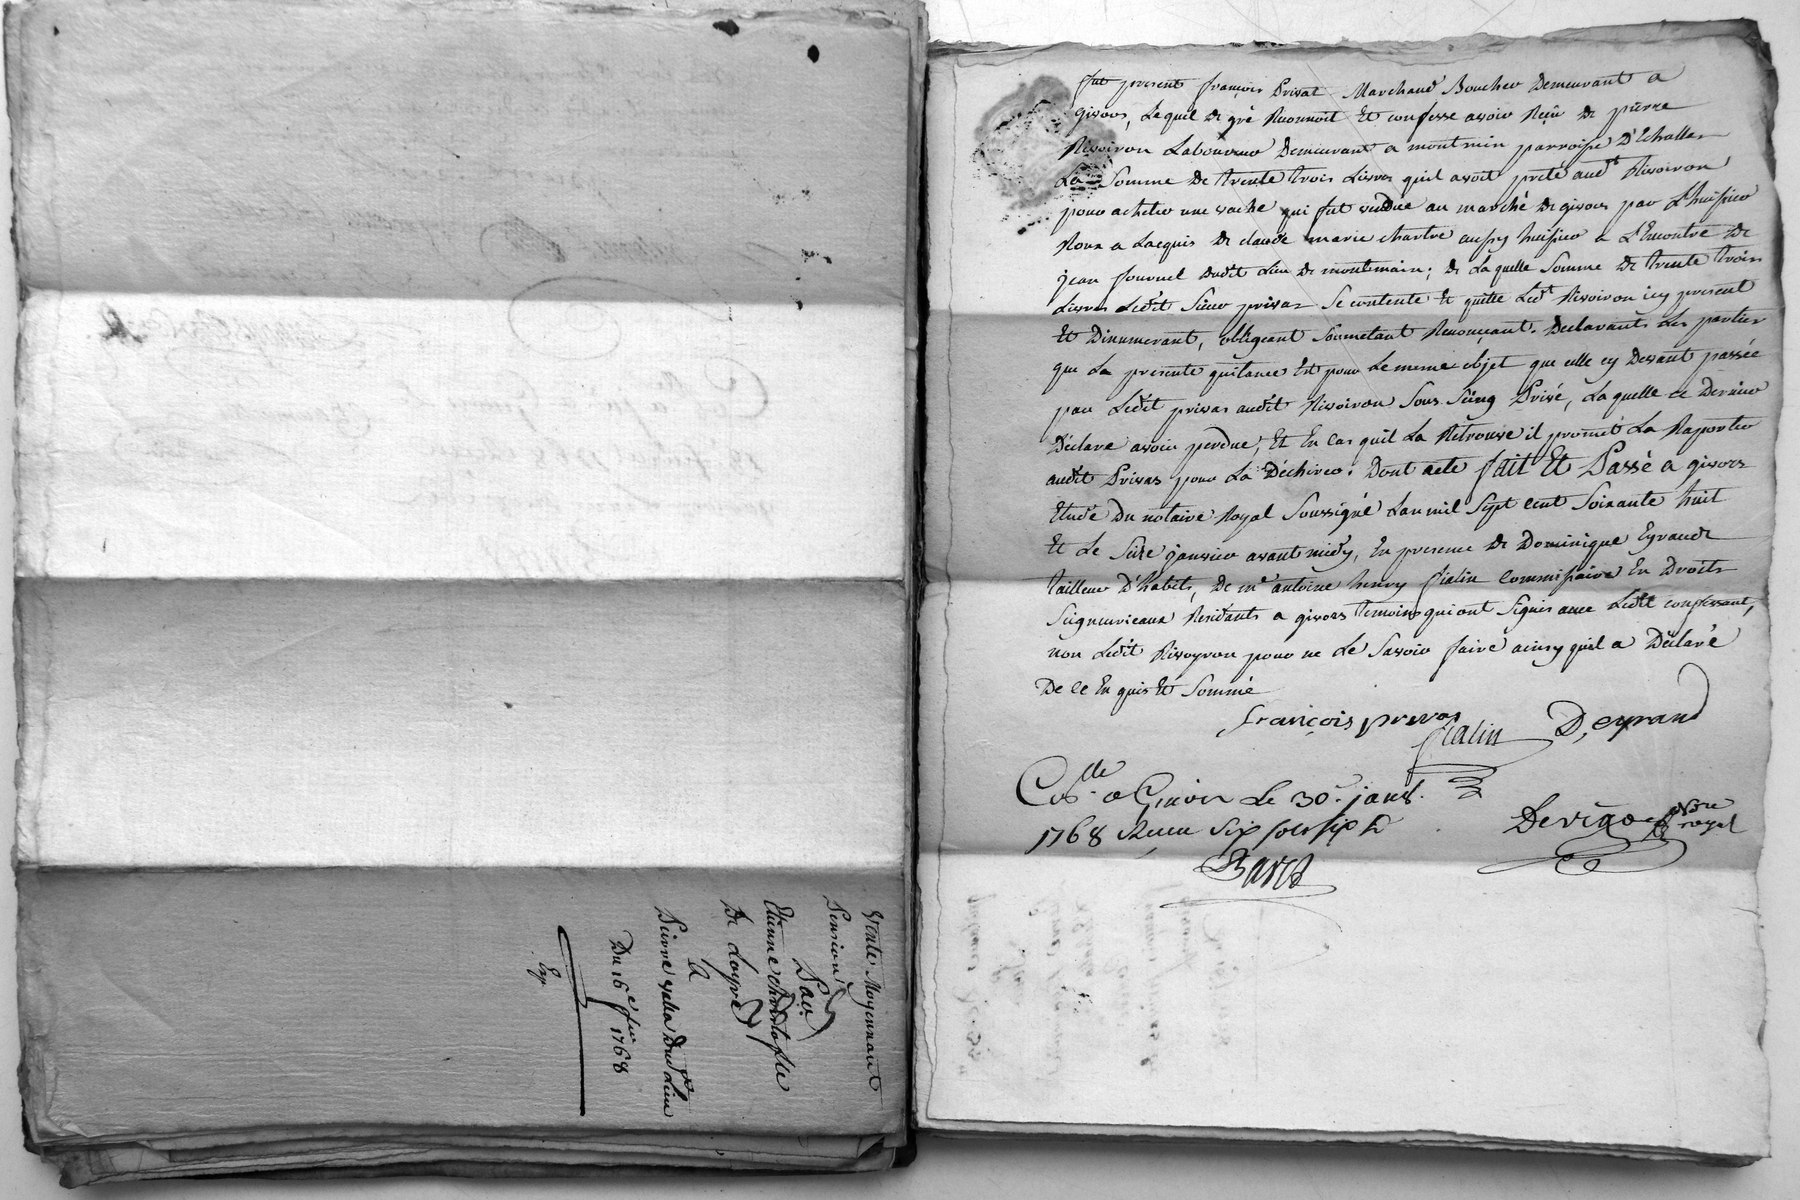 Vente Moyennant
Pension
Par
Etienne Christofle
De Loyre
A
Pierre valla Dud Lieu
Du 16e fer 1768
Exp
fut present françois Privat Marchand Boucher Demeurant a
givors, Lequel De gré Reconnoit Et confesse avoir Reçu De pierre
Rivoiron Laboureur Demeurant a montmin parroisse D'Echallas
La Somme De trente trois Livres quil avoit preté audt Rivoiron
pour acheter une vache qui fut vendue au marché De givors par L'huissier
Roux a Lacquis De claude marie chartre aussy huissier a L'Encontre De
jean fournel Dudit Lieu De montemain; De Laquelle Somme De trente trois
Livres Ledit Sieur privas Se contente Et quitte Ledt Rivoiron icy present
Et Dinumerant, obligeant Soumetant Renonçant. Declarants Les parties
que La presente quitance Est pour Le meme objet que celle cy Devant passée
par Ledit privas audit Rivoiron Sous Seing Privé, Laquelle ce Dernier
Declare avoir perdue, Et En Cas quil La Retrouve il promet La Raporter
audit Privas pour La Déchirer. Dont acte fait Et Passé a givors
Etude Du notaire Royal Soussigné Lan mil Sept cent Soixante huit
Et Le Seize janvier avant midy, En presence De Dominique Eyraud
tailleur D'habits, De me antoine henry fialin Commissaire En Droits
Seigneuriaux Residants a givors temoins qui ont Signés avec Ledit confessant,
non Ledit Rivoyron pour ne Le Savoir faire ainsy quil a Déclaré
De ce En quis Et Sommé
françois privas
fialin D, eyraud
Collé a Givors Le 30e janv.
1768 Recu Six sols six d
Devigoe Nore royal